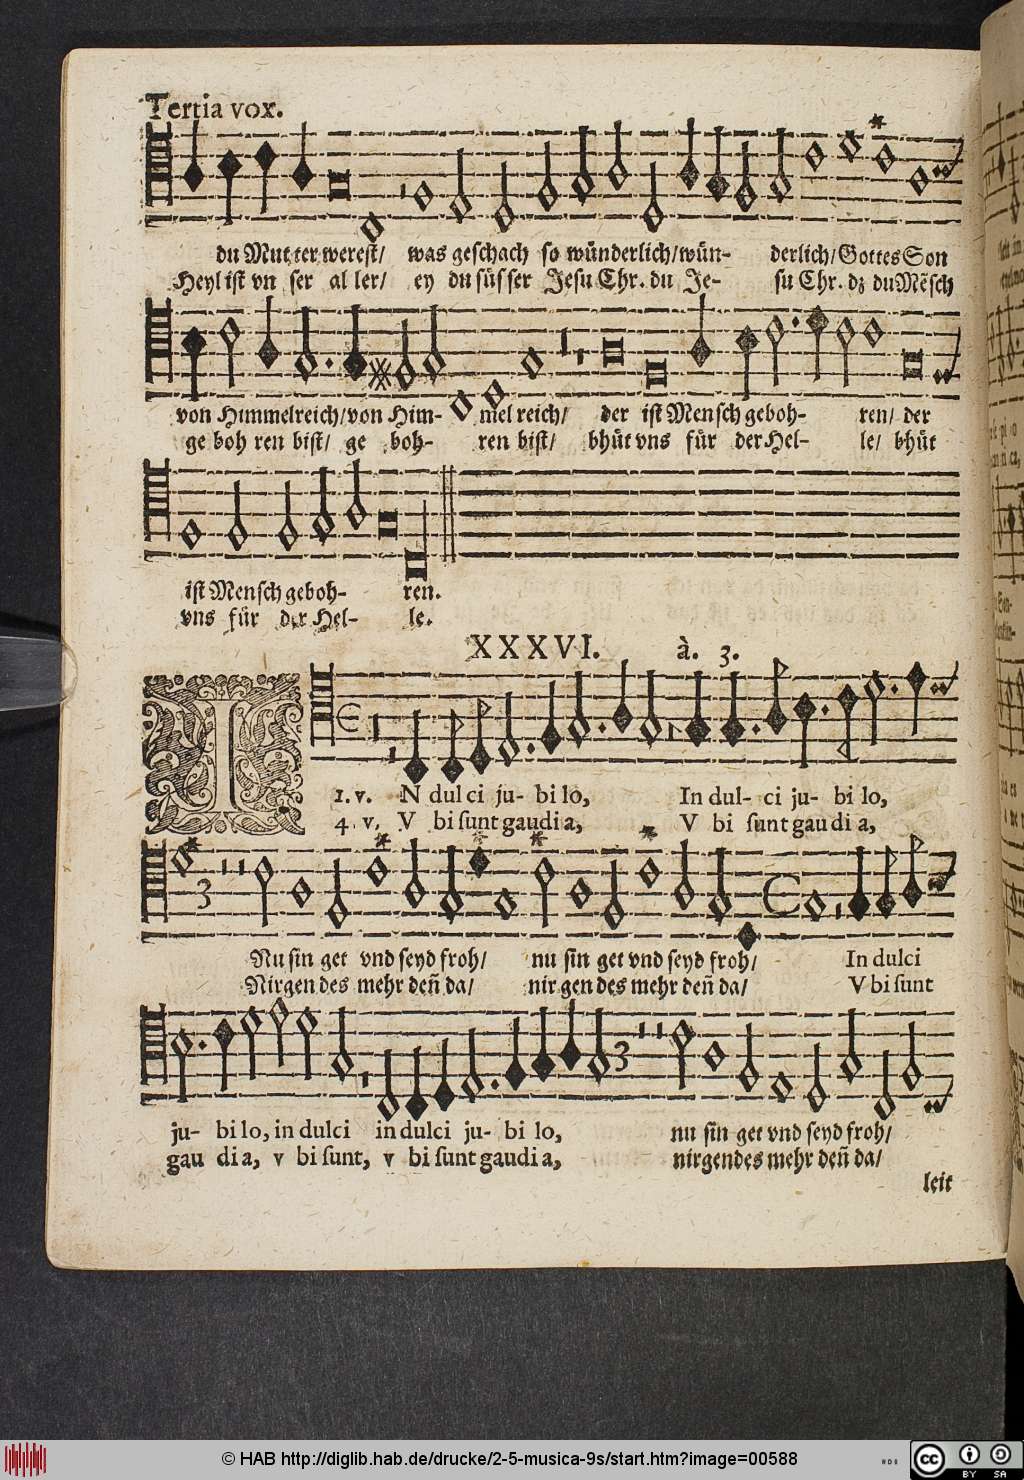 Tertia vox.
du Mut ter werest/ was geschach so wünderlich/wün- derlich/Gottes Son
Heyl ist vn ser al ler/ ey du süs ser Jesu Chr. du Je- su Chr. dz du Mẽsch
von Himmelreich/von Him- mel reich/ der ist Mensch geboh- ren/ der
ge boh ren bist/ ge boh- ren bist/ bhüt vns für der Hel- le/ bhüt
ist Mensch geboh- ren.
vns für der Hel- le.
XXXVI. à. 3.
I
1. v. N dul ci ju- bi lo, In dul- ci ju- bi lo,
4 v. V bi sunt gaudi a, V bi sunt gau di a,
3
Nu sin get vnd seyd froh/ nu sin get vnd seyd froh/ In dulci
Nirgen des mehr deñ da/ nir gen des mehr deñ da/ V bi sunt
3
ju- bi lo, in dulci in dulci ju- bi lo, nu sin get vnd seyd froh/
gau di a, v bi sunt, v bi sunt gaudi a, nirgendes mehr deñ da/
leit
© HAB http://diglib.hab.de/drucke/2-5-musica-9s/start.htm?image=00588
cc BY SA